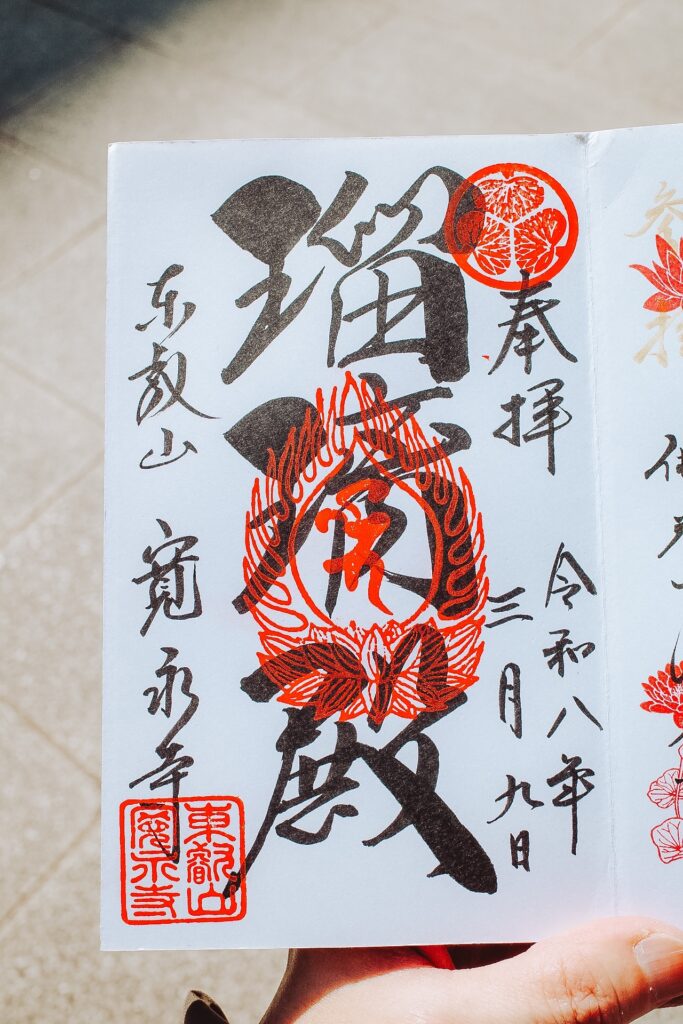 奉拝
令和八年
三月九日
瑠璃殿
東叡山 寛永寺
東叡山
寛永寺